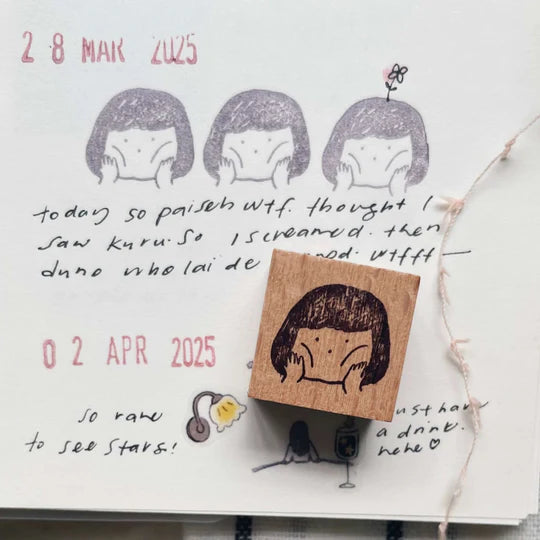 28 MAR 2025
today so paiseh wtf. thought I
saw kuru. so I screamed. then
duno who lai de wtfff—
02 APR 2025
so rare
to see stars!
a drink.
hehe♡